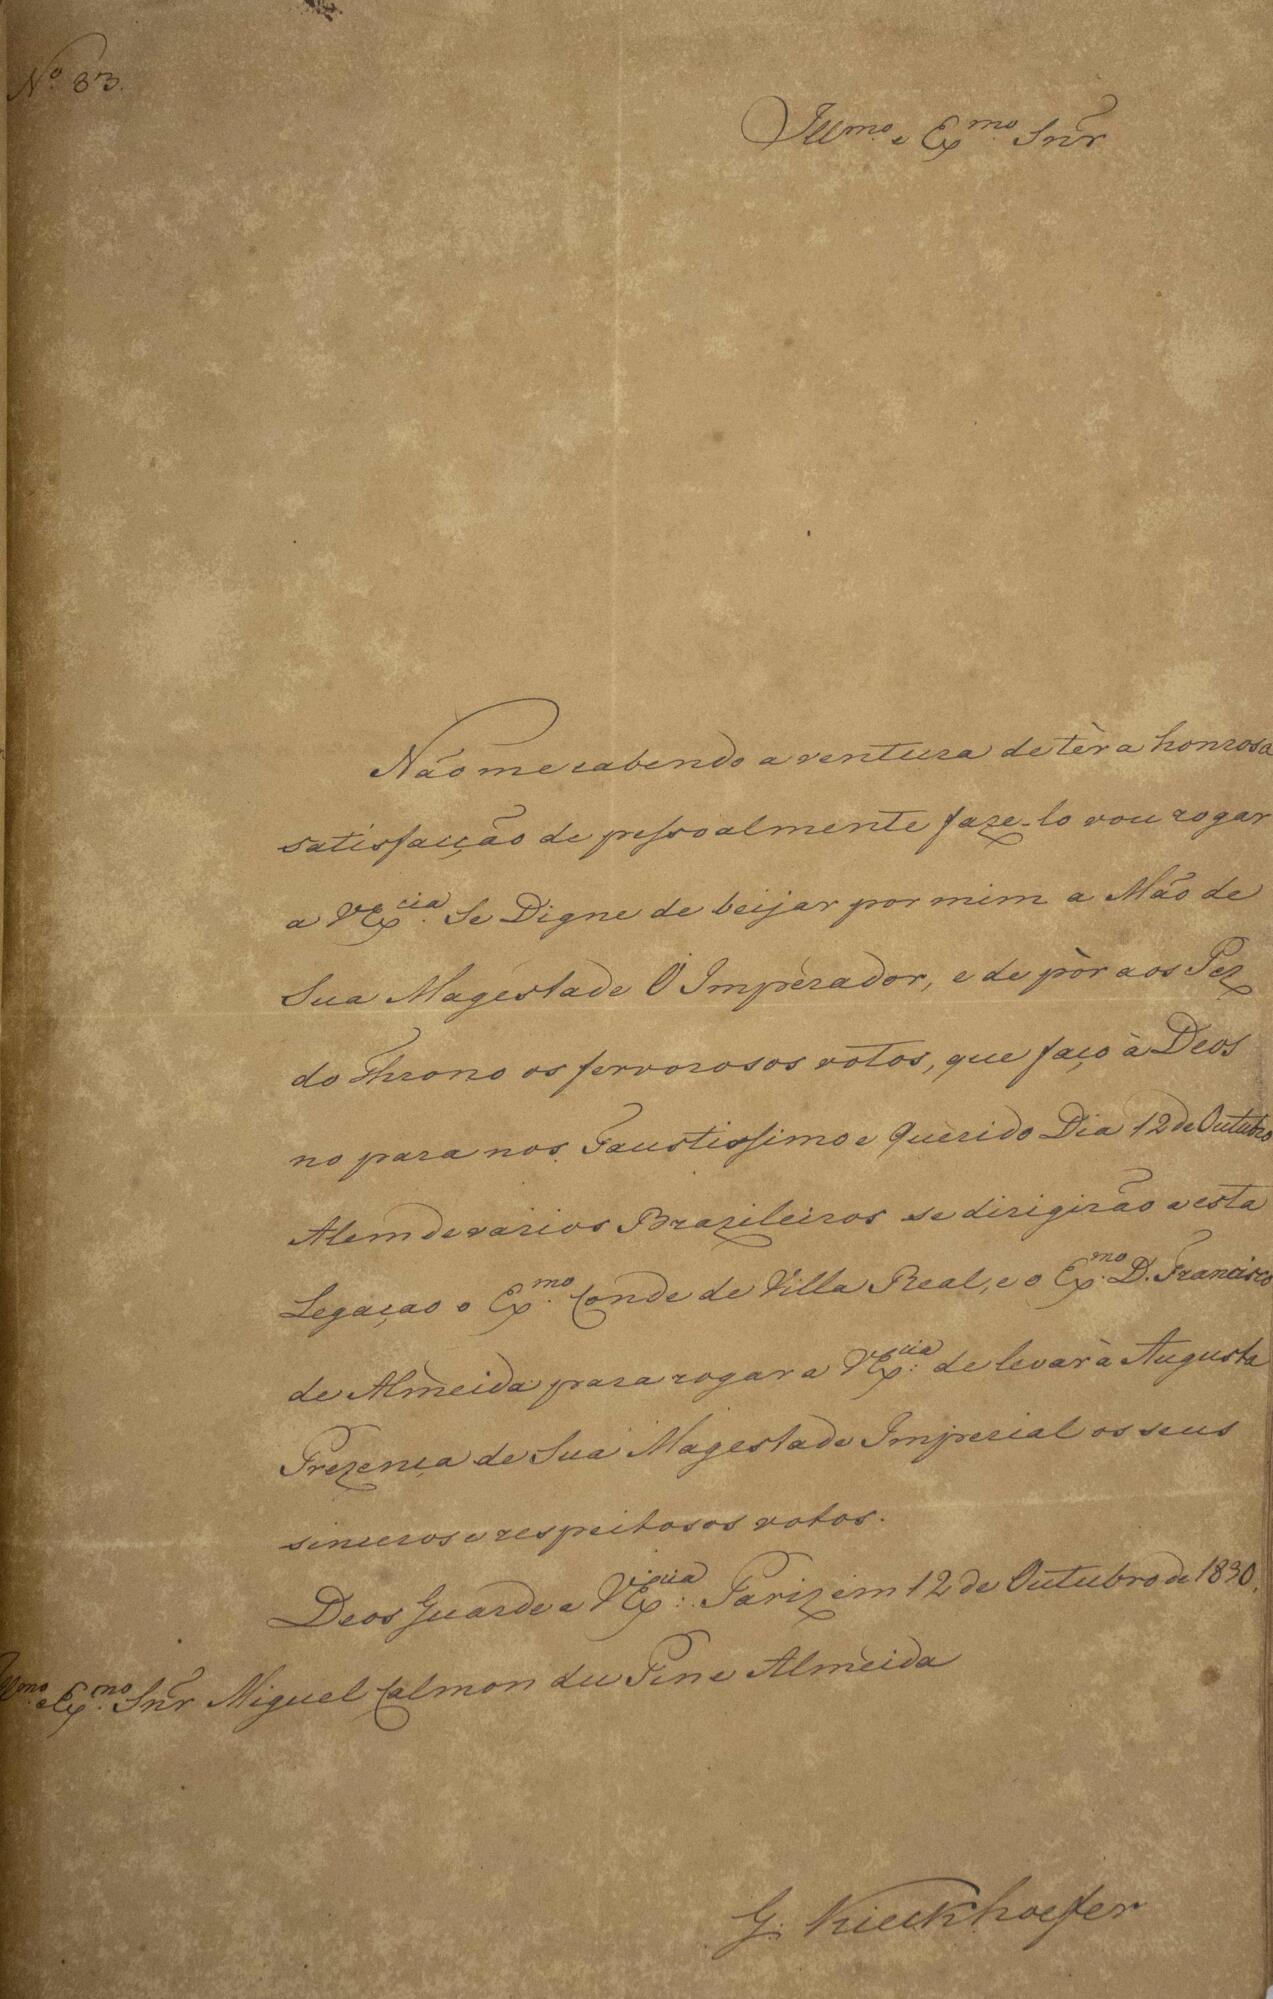 Nº 83.
Illmo. e Exmo. Snr̃
Não me cabendo a ventura de tèr a honrosa
satisfacção de pessoalmente faze-lo vou rogar
a VExcia. Se Digne de beijar por mim a Mão de
Sua Magestade O Imperador, e de pòr aos Pez
do Throno os fervorosos votos, que faço à Deos
no para nos Faustissimo e Querido Dia 12 de Outubro
Alem de varios Brazileiros se dirigirão a esta
Legaçao o Exmo. Conde de Villa Real, e o Exmo. D. Francisco
de Almeida para rogar a VExcia. de levar à Augusta
Prezença de Sua Magestade Imperial os seus
sinceros e respeitosos votos.
Deos Guarde a VExcia. Pariz em 12 de Outubro de 1830.
Illmo. e Exmo. Snr̃ Miguel Calmon du Pin e Almeida
G. Kieckhoefer